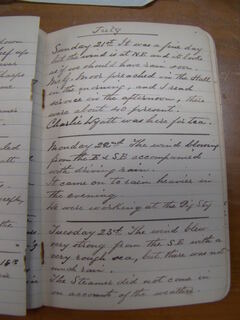 July
Sunday 21st It was a fine day
but the wind is at N.E. and it looks
as if we should have rain soon.
Mr J. Moor preached in the Hall
in the morning, and I read
service in the afternoon, there
were about 40 present.
Charlie Lyatt was here for tea.
Monday 22nd The wind blowing
from the E & S.E accompanied
with driving rain.
It came on to rain heavier in
the evening.
We were working at the Pig Sty
Tuesday 23rd The wind blew
very strong from the S.E. with a
very rough sea, but there was not
much rain.
The Steamer did not come in
on account of the weather